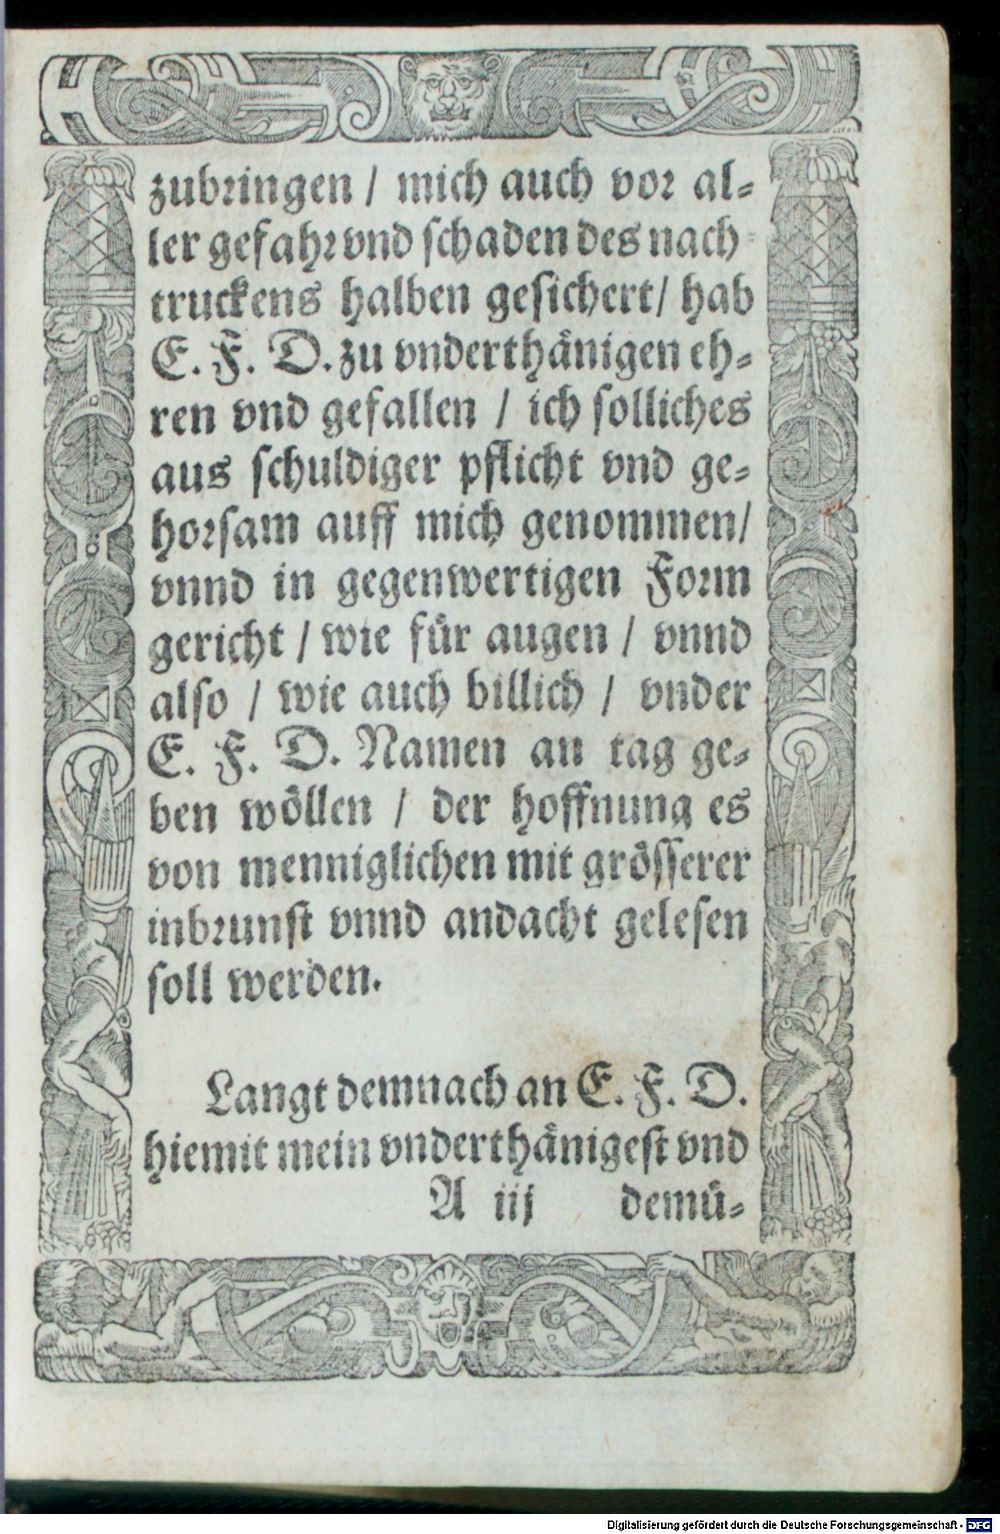 zubringen / mich auch vor al⸗
ler gefahr vnd schaden des nach⸗
truckens halben gesichert / hab
E. F. D. zu vnderthänigen eh⸗
ren vnd gefallen / ich solliches
aus schuldiger pflicht vnd ge⸗
horsam auff mich genommen /
vnnd in gegenwertigen Form
gericht / wie für augen / vnnd
also / wie auch billich / vnder
E. F. D. Namen an tag ge⸗
ben wöllen / der hoffnung es
von menniglichen mit grösserer
inbrunst vnnd andacht gelesen
soll werden.
Langt demnach an E. F. D.
hiemit mein vnderthänigest vnd
A iij demü⸗
Digitalisierung gefördert durch die Deutsche Forschungsgemeinschaft - DFG